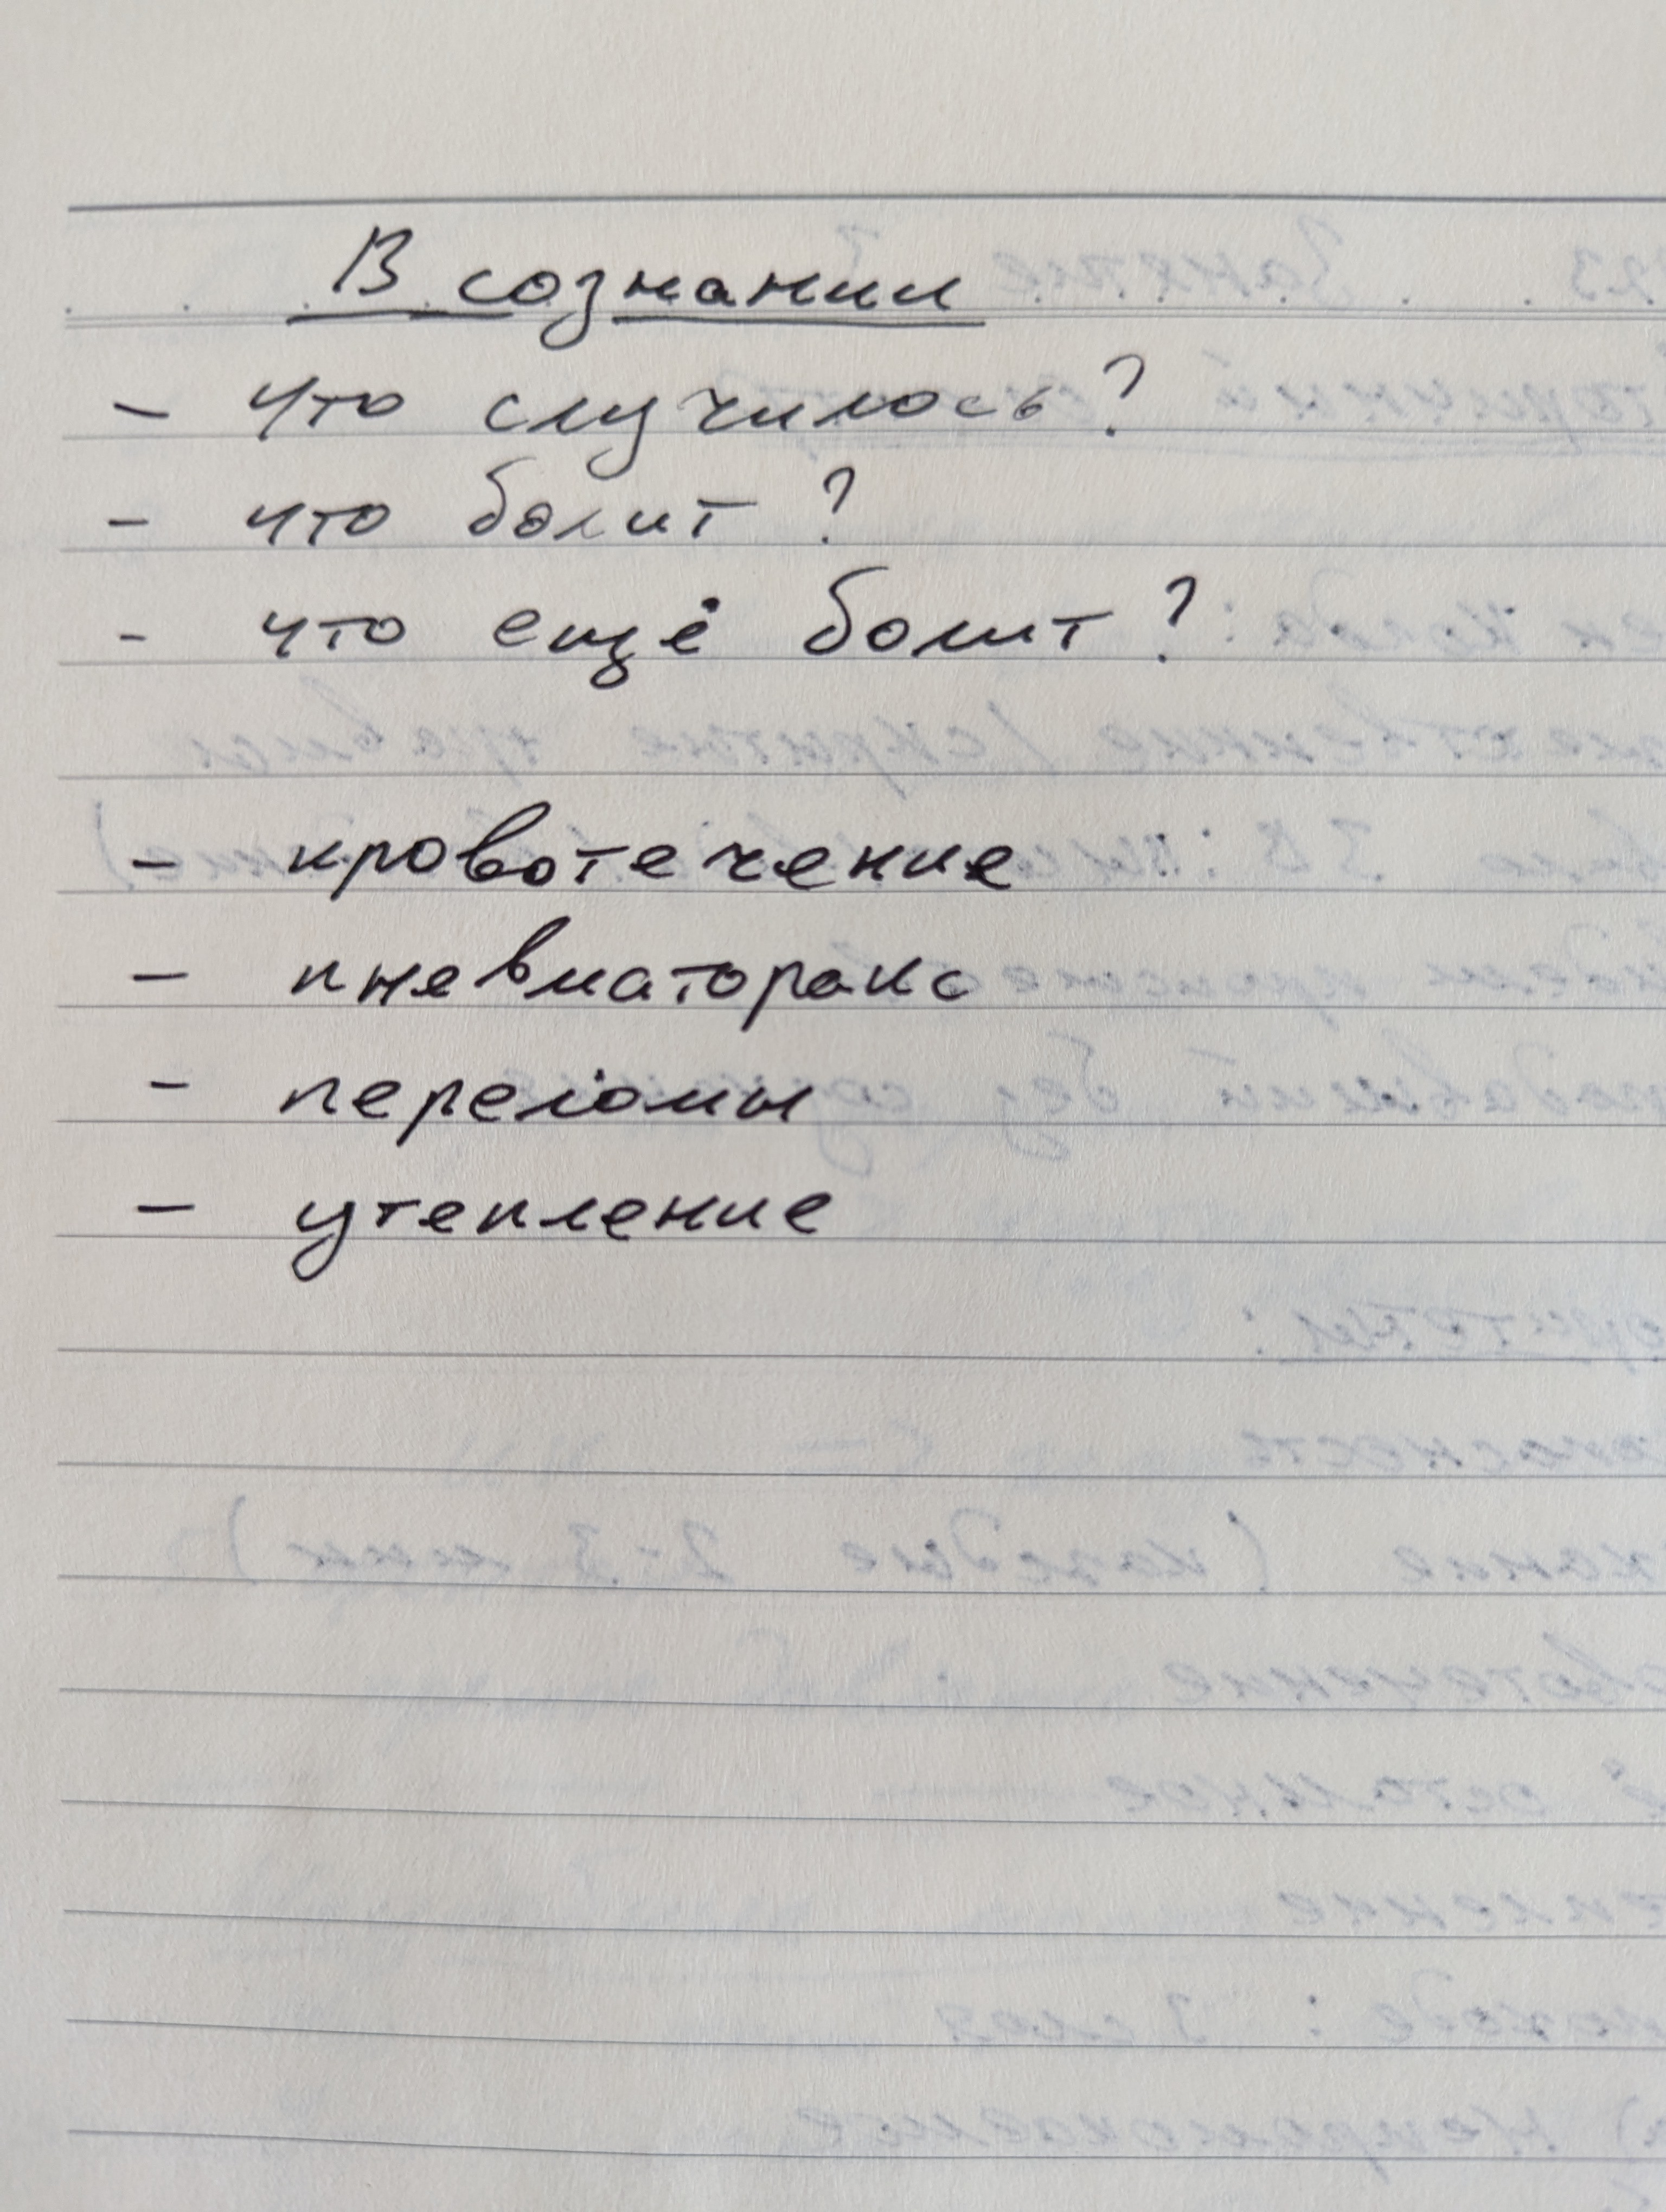 В сознании
- что случилось?
- что болит?
- что ещё болит?
- кровотечение
- пневматоракс
- переломы
- утепление